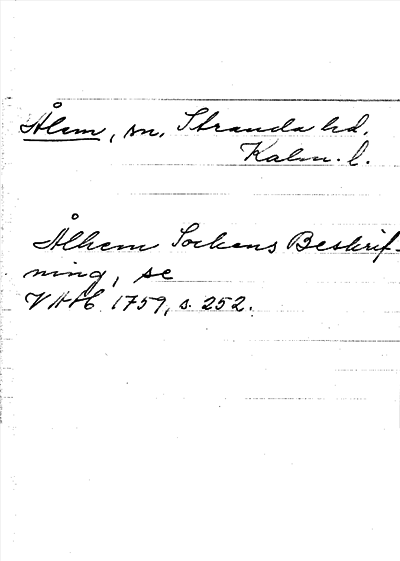 Ålem, sn, Stranda hd.
Kalm. l.
Ålhem Sockens Beskrif-
ning, se
VAH 1759, s. 252.